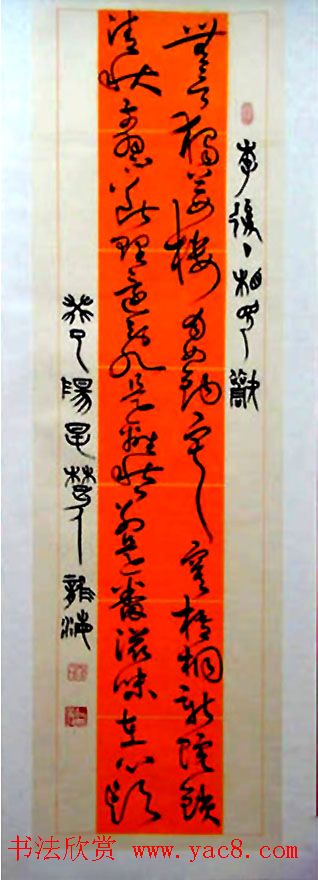 李後主相見歡
無言獨上西樓月如鉤寂寞梧桐深院鎖
清秋剪不斷理還亂是離愁別是一番滋味在心頭
书法欣赏 www.yac8.com